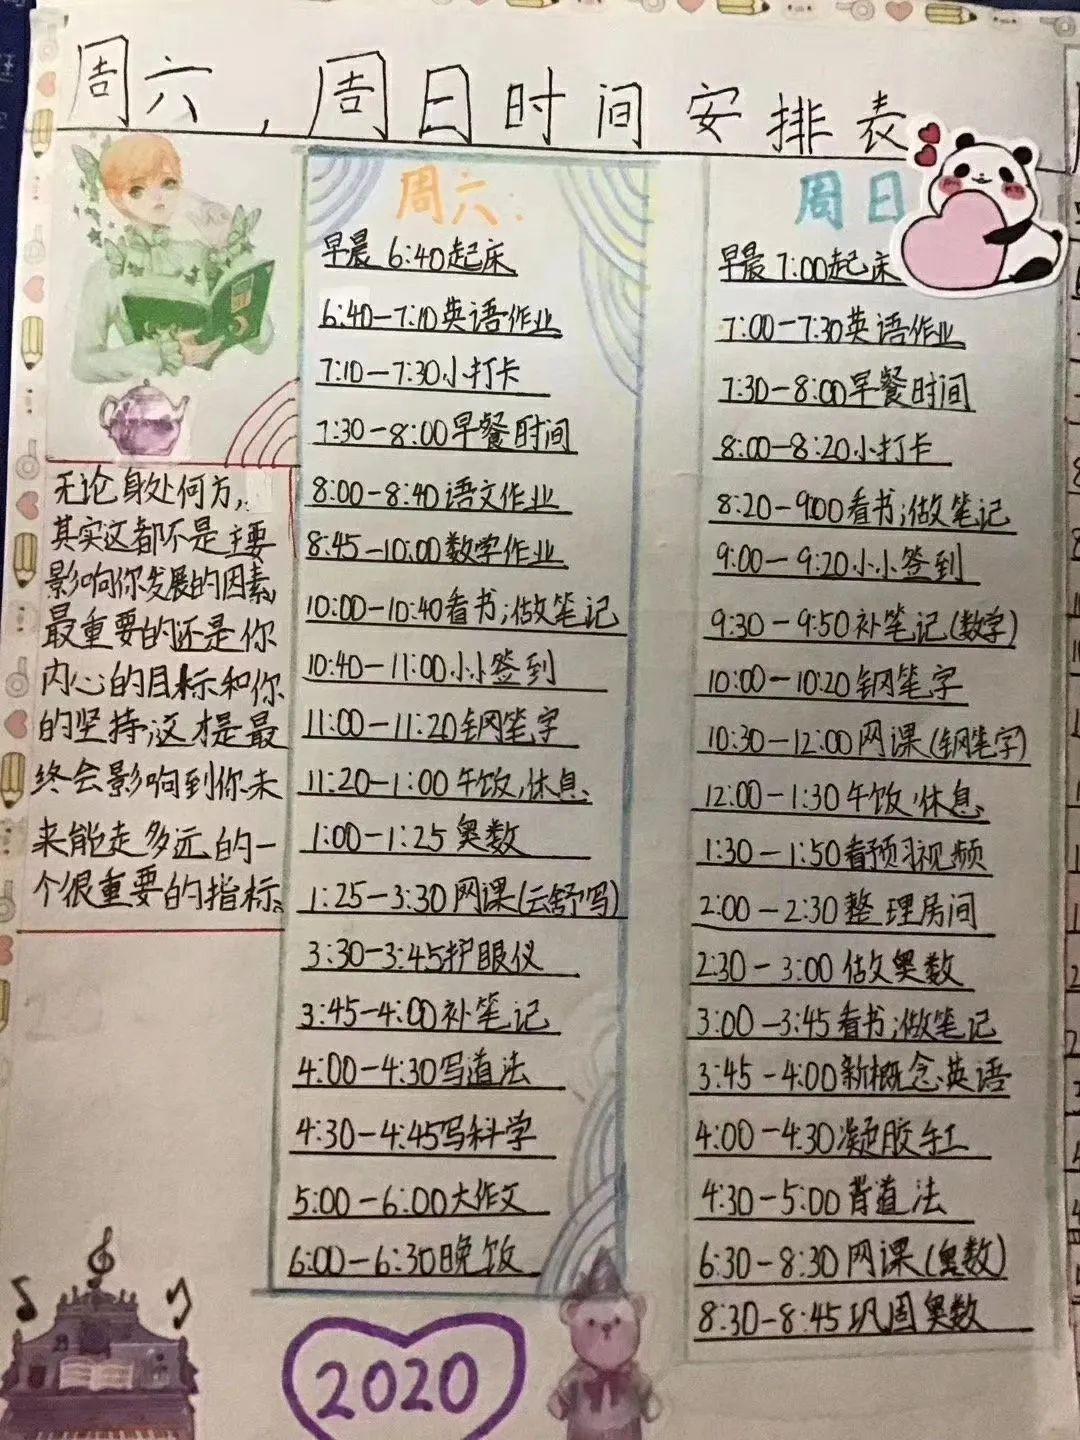 周六，周日时间安排表
无论身处何方，
其实这都不是主要
影响你发展的因素，
最重要的还是你
内心的目标和你
的坚持，这才是最
终会影响到你未
来能走多远的一
个很重要的指标。
周六：
早晨 6:40起床
6:40-7:10英语作业
7:10-7:30小打卡
7:30-8:00早餐时间
8:00-8:40语文作业
8:45-10:00数学作业
10:00-10:40看书；做笔记
10:40-11:00小小签到
11:00-11:20钢笔字
11:20-1:00午饭，休息。
1:00-1:25奥数
1:25-3:30网课(云舒写)
3:30-3:45护眼仪
3:45-4:00补笔记
4:00-4:30写道法
4:30-4:45写科学
5:00-6:00大作文
6:00-6:30晚饭
周日
早晨 7:00起床
7:00-7:30英语作业
7:30-8:00早餐时间
8:00-8:20小打卡
8:20-9:00看书；做笔记
9:00-9:20小小签到
9:30-9:50补笔记(数学)
10:00-10:20钢笔字
10:30-12:00网课(钢笔字)
12:00-1:30午饭，休息。
1:30-1:50看预习视频
2:00-2:30整理房间
2:30-3:00做奥数
3:00-3:45看书；做笔记
3:45-4:00新概念英语
4:00-4:30凝胶手工
4:30-5:00背道法
6:30-8:30网课(奥数)
8:30-8:45巩固奥数
2020